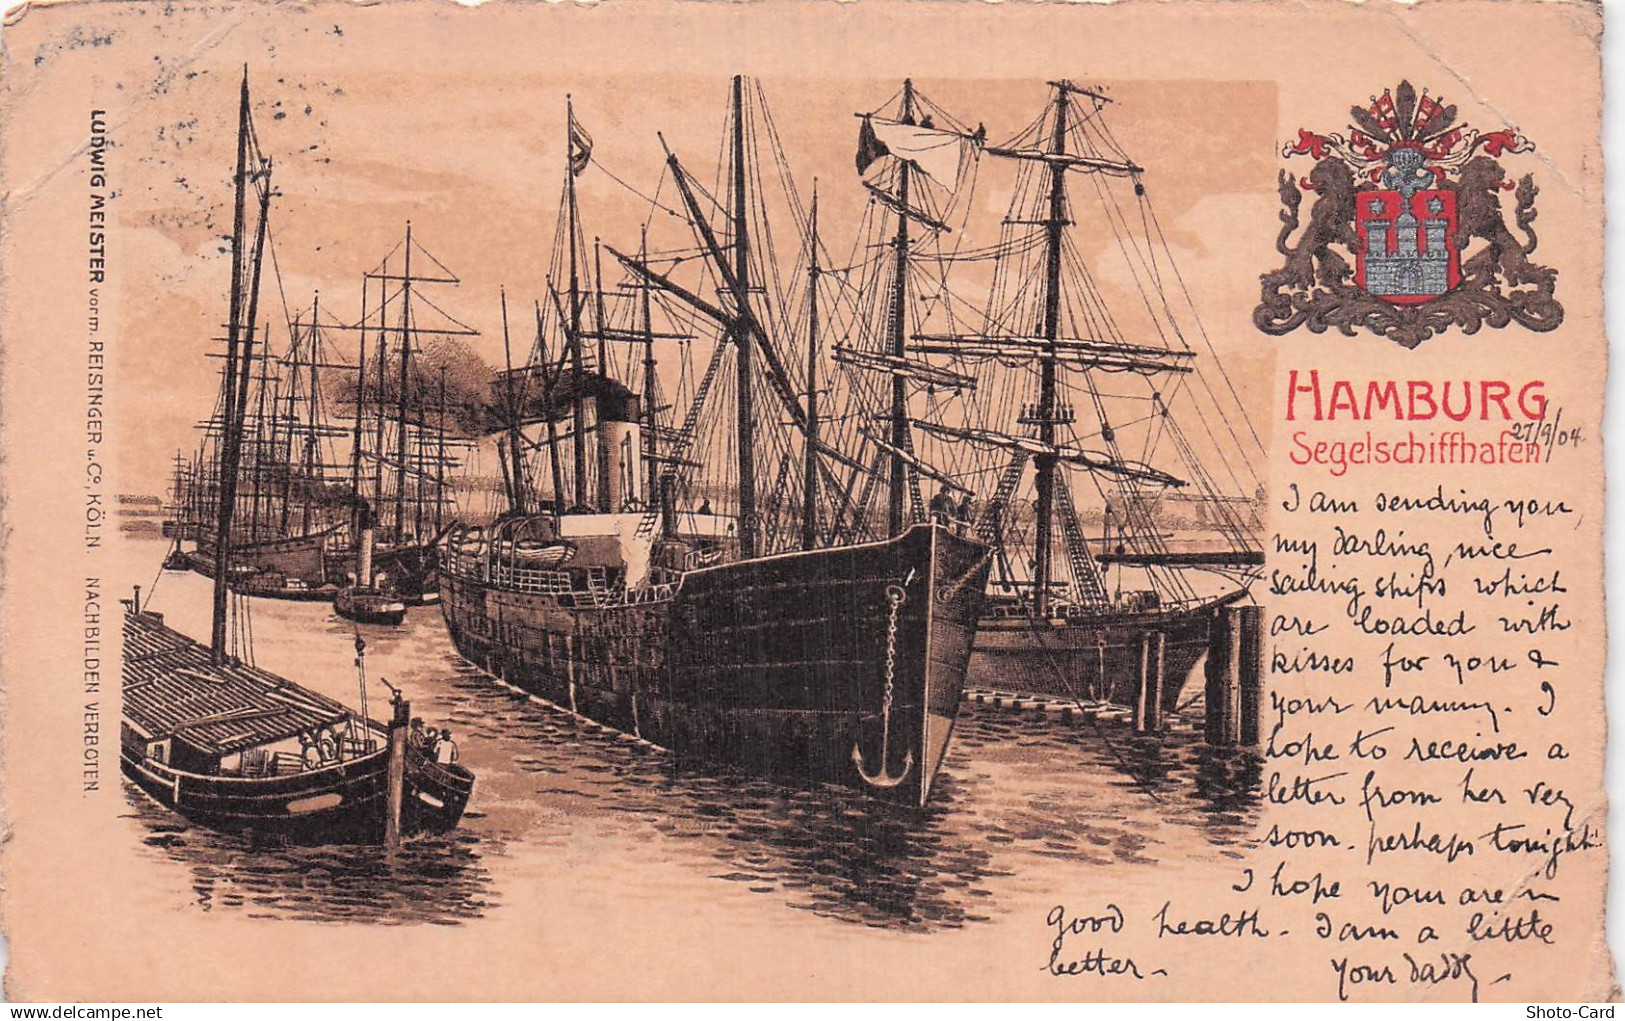 LUDWIG MEISTER vorm. REISINGER u. Co, KÖLN NACHBILDEN VERBOTEN.
HAMBURG
Segelschiffhafen
27/9/04.
I am sending you,
my darling, nice
sailing ships which
are loaded with
kisses for you &
your mammy. I
hope to receive a
letter from her very
soon. perhaps tonight!!
I hope your are in
good health. I am a little
better.
Your daddy
www.delcampe.net
Shoto-Card